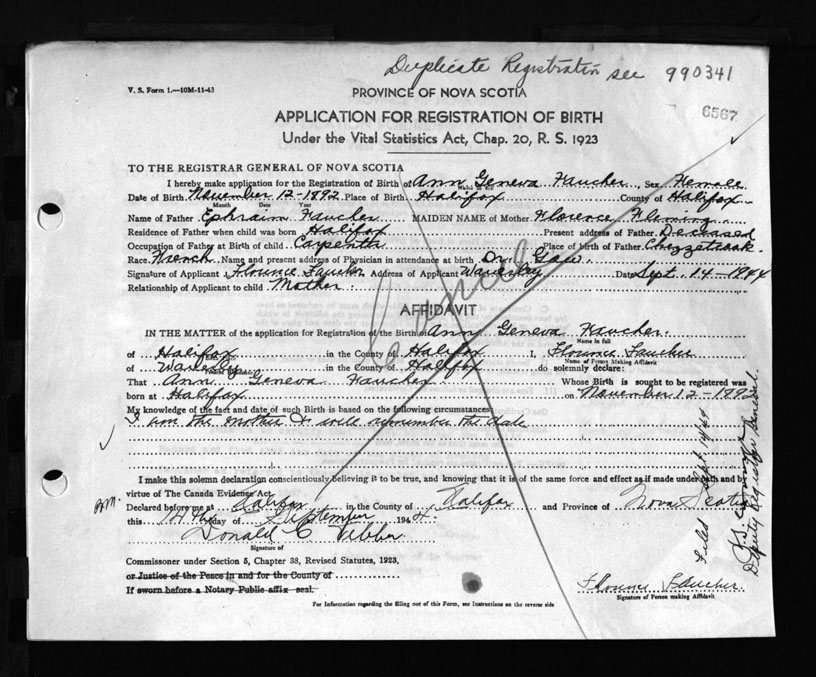 Duplicate Registration see 990341
V. S. Form 1.—10M-11-43
PROVINCE OF NOVA SCOTIA
6567
APPLICATION FOR REGISTRATION OF BIRTH
Under the Vital Statistics Act, Chap. 20, R. S. 1923
TO THE REGISTRAR GENERAL OF NOVA SCOTIA
I hereby make application for the Registration of Birth of Ann Geneva Faucher, Sex Female
Date of Birth November 12-1892 Place of Birth Halifax County of Halifax
Month Date Year
Name of Father Ephraim Faucher MAIDEN NAME of Mother Florence Fleming
Residence of Father when child was born Halifax Present address of Father Deceased
Occupation of Father at Birth of child Carpenter Place of birth of Father Chezzetcook
Race French Name and present address of Physician in attendance at birth Dr. Gow
Signature of Applicant Florence Faucher Address of Applicant Waverley Date Sept. 14-1944
Relationship of Applicant to child Mother
AFFIDAVIT
IN THE MATTER of the application for Registration of the Birth of Ann Geneva Faucher
Name in full
of Halifax in the County of Halifax I, Florence Faucher
Name of Person Making Affidavit
of Waverley in the County of Halifax do solemnly declare:
That Ann Geneva Faucher Whose Birth is sought to be registered was
born at Halifax on November 12-1892
My knowledge of the fact and date of such Birth is based on the following circumstances
I am the mother & well remember the date
I make this solemn declaration conscientiously believing it to be true, and knowing that it is of the same force and effect as if made under oath and by
virtue of The Canada Evidence Act.
Declared before me at Halifax in the County of Halifax and Province of Nova Scotia
this 14th day of September 1944.
Donald C
Signature of
Commissioner under Section 5, Chapter 38, Revised Statutes, 1923,
or Justice of the Peace in and for the County of
If sworn before a Notary Public affix seal.
Florence Faucher
Signature of Person making Affidavit
For Information regarding the filling out of this Form, see Instructions on the reverse side
Filed Sept 14/44
Deputy Registrar General